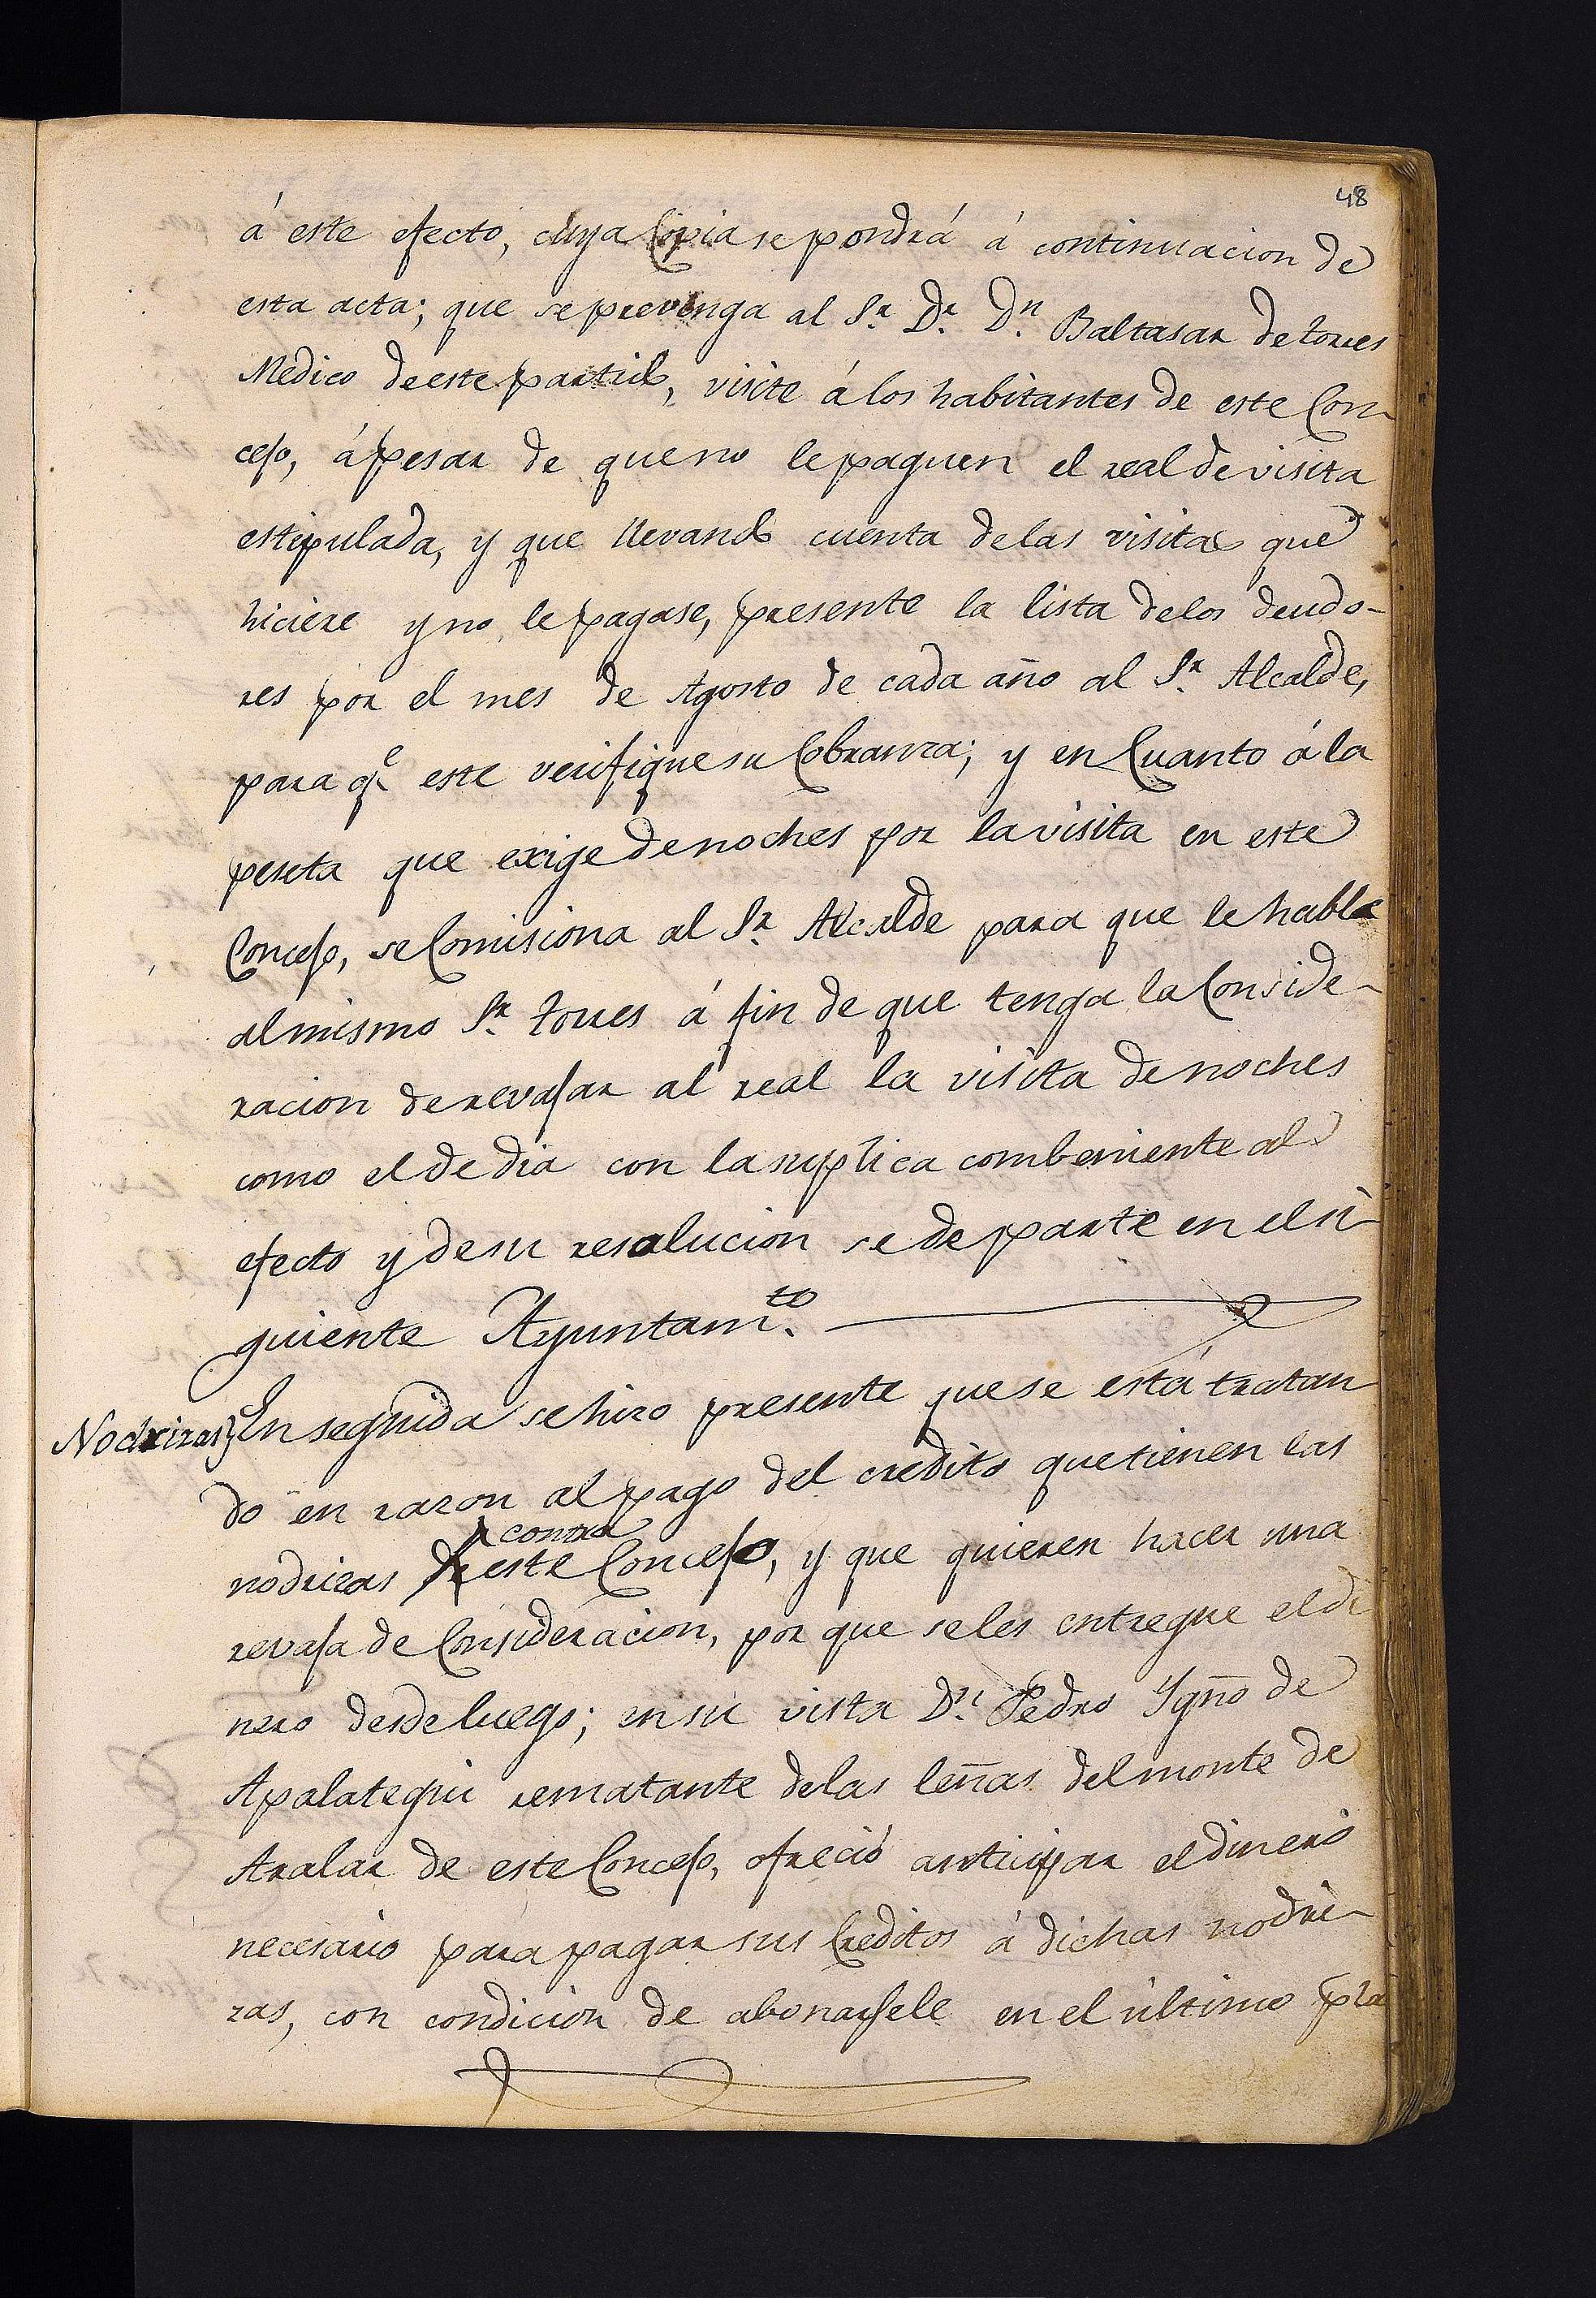 48
á este efecto, cuya Copia se pondrá á continuacion de
esta acta; que se prevenga al Sr. Dr. Dn. Baltasar de torres
Medico de este partido, visite á los habitantes de este Con-
cejo, á pesar de que no le paguen el real de visita
estipulada, y que llevando cuenta de las visitas que
hiciere y no le pagase, presente la lista de los deudo-
res por el mes de Agosto de cada año al Sr. Alcalde,
para qe. este verifique su Cobranza; y en Cuanto á la
peseta que exige de noches por la visita en este
Concejo, se Comisiona al Sr. Alcalde para que le hable
al mismo Sr. torres á fin de que tenga la Conside-
racion de revajar al real la visita de noches
como el de dia con la suplica combeniente al
efecto y de su resolucion se de parte en el si-
guiente Ayuntamto.
Nodrizas} En seguida se hizo presente que se está tratan
do en razon al pago del credito que tienen las
contra
nodrizas de este Concejo, y que quieren hacer una
revaja de Consideracion, por que se les entregue el di
nero desde luego; en su vista Dn. Pedro Ygño de
Apalategui rematante de las leñas del monte de
Aralar de este Concejo, ofreció anticipar el dinero
necesario para pagar sus Creditos á dichas nodri-
zas, con condicion de abonarsele en el último pla